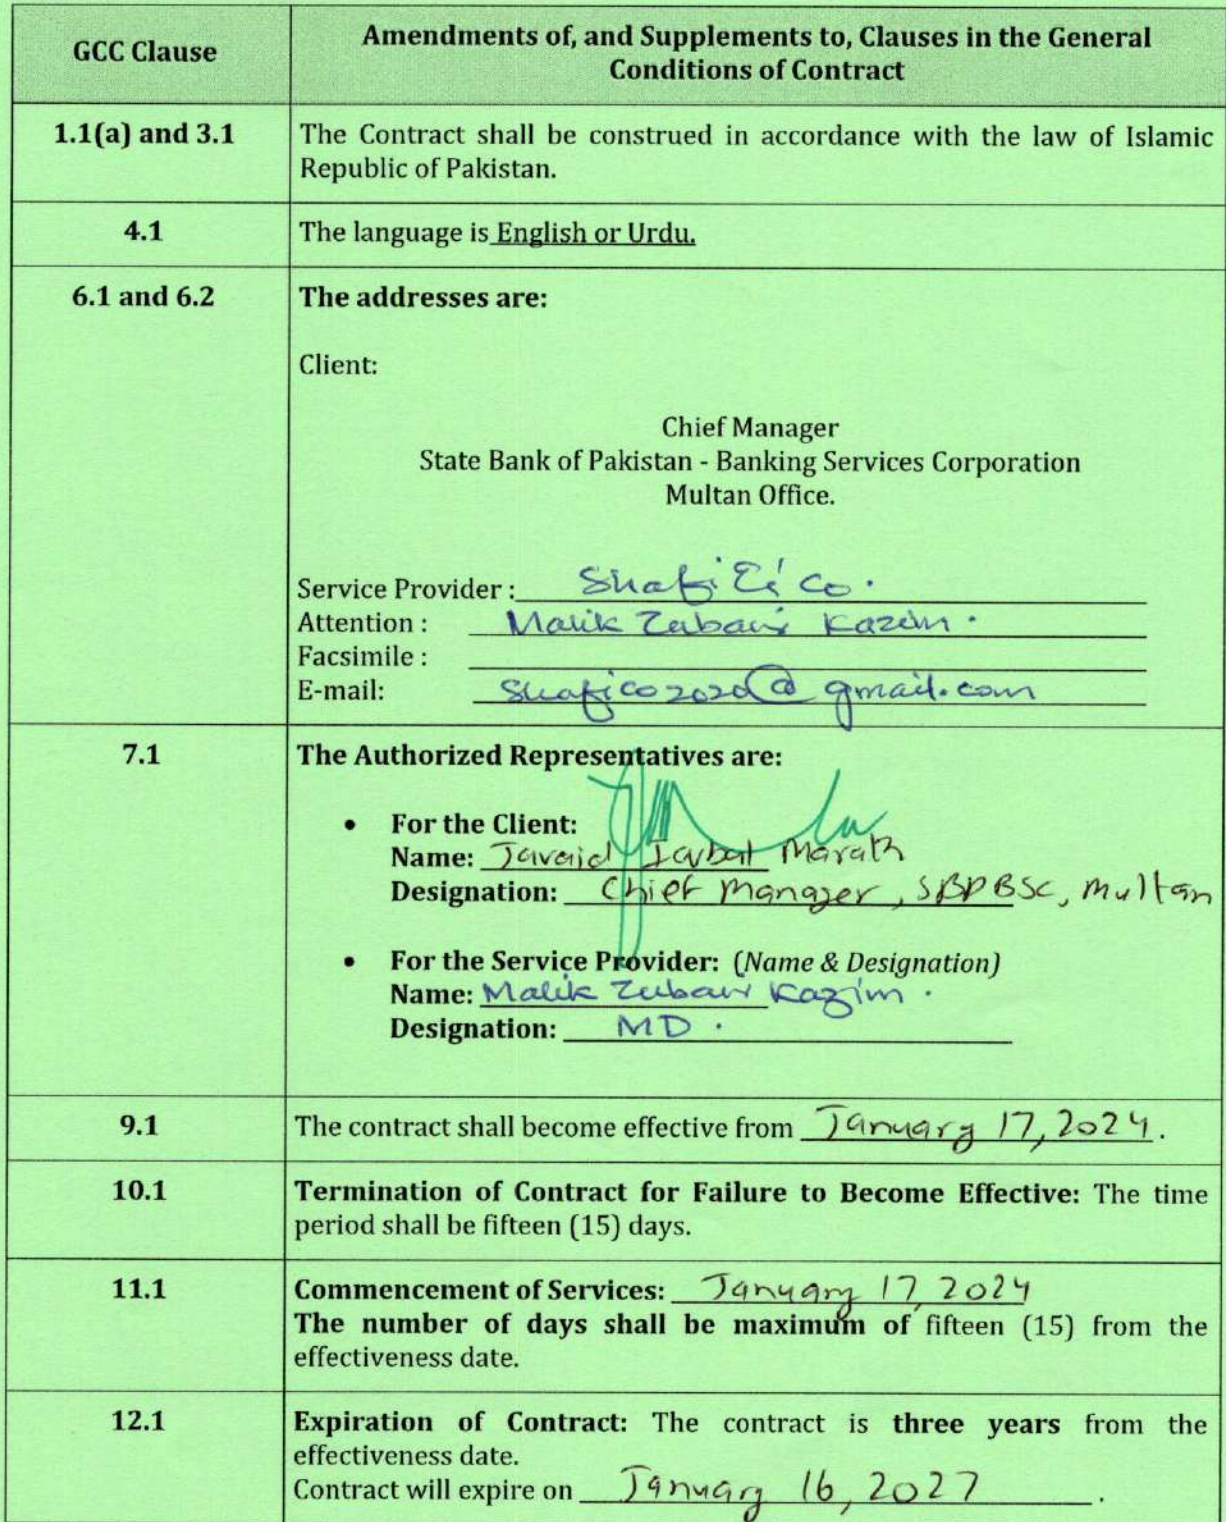 GCC Clause
Amendments of, and Supplements to, Clauses in the General
Conditions of Contract
1.1(a) and 3.1
The Contract shall be construed in accordance with the law of Islamic
Republic of Pakistan.
4.1
The language is English or Urdu.
6.1 and 6.2
The addresses are:
Client:
Chief Manager
State Bank of Pakistan - Banking Services Corporation
Multan Office.
Service Provider : Shafi & Co.
Attention : Malik Zubair Kazim.
Facsimile :
E-mail: shafico2020@gmail.com
7.1
The Authorized Representatives are:
• For the Client:
Name: Javaid Iqbal Marath
Designation: Chief Manager, SBPBSC, Multan
• For the Service Provider: (Name & Designation)
Name: Malik Zubair Kazim.
Designation: MD.
9.1
The contract shall become effective from January 17, 2024.
10.1
Termination of Contract for Failure to Become Effective: The time
period shall be fifteen (15) days.
11.1
Commencement of Services: January 17, 2024
The number of days shall be maximum of fifteen (15) from the
effectiveness date.
12.1
Expiration of Contract: The contract is three years from the
effectiveness date.
Contract will expire on January 16, 2027.